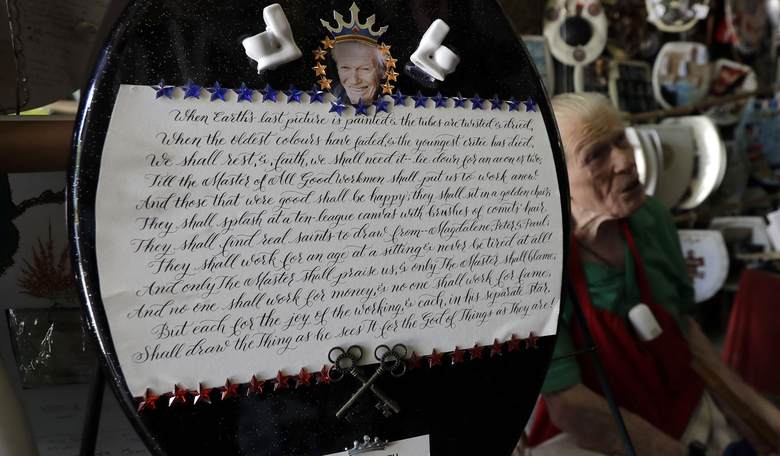 When Earth's last picture is painted & the tubes are twisted & dried,
When the oldest colours have faded, & the youngest critic has died,
We shall rest, &, faith, we shall need it - lie down for an aeon or two,
Till the Master of All Good workmen shall put us to work anew
And those that were good shall be happy; they shall sit in a golden chair;
They shall splash at a ten-league canvas with brushes of comets' hair
They shall find real saints to draw from - Magdalene, Peter, & Paul;
They shall work for an age at a sitting & never be tired at all!
And only The Master shall praise us, & only The Master shall blame;
And no one shall work for money, & no one shall work for fame,
But each for the joy of the working, & each, in his separate star,
Shall draw the Thing as he sees It for the God of Things as They are!